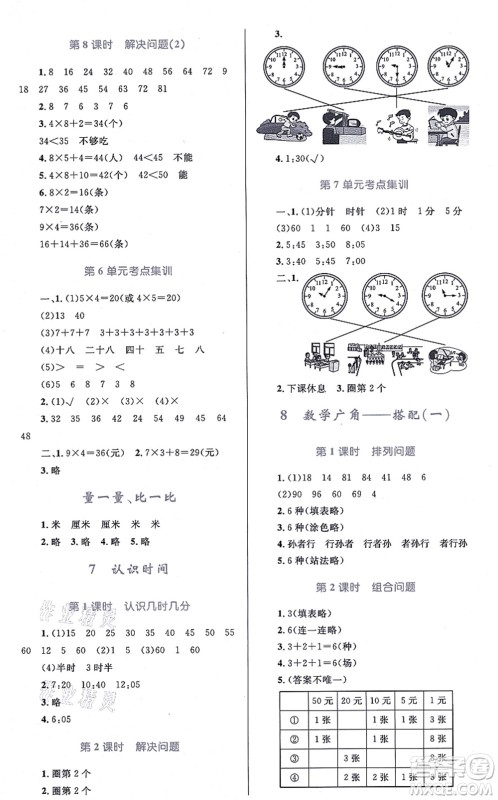 第 8 课时　解决问题(2)
1. 8　16　24　32　40　48　56　64　72　9
18　27　36　45　54　63　72　81
2. 8　7　6　3　7　6
3. 4×8+2=34(个)
34<35　不够吃
4. 8×5+4=44(人)　44<45　不能
5. 8×4+2=34(个)　34<35　能
6. 8×2=16(条)
7×2=14(条)
9×4=36(条)
16+14+36=66(条)
第 6 单元考点集训
一、1. (1)5×4=20(或 4×5=20)
(2)13　40
(3)7+7+7　3+3+3+3+3+3+3
(4)十八　二十八　四十　五　七　八
(5)>　=　>　<
(6)5　9　8　2　4　7
2. (1)√　(2)×　(3)×　(4)√
3. 32　35　36　54　24　29　45　49　64
48
二、1. 9×4=36(元)　2. 7×3+8=29(元)
3. 略
量一量、比一比
1. 米　厘米　米　厘米　厘米　米
2. 略　3. 略　4. 略　5. 略
7　认识时间
第 1 课时　认识几时几分
1. (1)5　15　20　30　35　40　45　50　55
60　(2)1　60　(3)时　分　1　60
(4)半时　3 时半
2. 7:20　10:40　4:15　7:30
3. 略
4. 6:05
第 2 课时　解决问题
1. 圈第 2 个
2. 圈第 2 个
3.
4. 1:30(√)
第 7 单元考点集训
一、1. (1)分针　时针　(2)1 时　1 分　5 分
(3)60　1　1　60　(4)90　80
2. 5:45
3. 3:20　6:05　9:50
二、1.
2. 下课休息　3. 圈第 2 个
8　数学广角——搭配(一)
第 1 课时　排列问题
1. (1)18　14　81　84　41　48　6
(2)90　94　30　34　4
2. 6 种(填表略)
3. 6 种(涂色略)
4. 孙行者　行孙者　行者孙　者行孙
5. 6 种(站法略)
第 2 课时　组合问题
1. 3(填表略)
2. 6(连一连略)
3. 3+2+1=6(种)
4. 3+2+1=6(场)
5. (答案不唯一)
50 元　20 元　10 元　5 元　1 元
①　1 张　1 张　3 张
②　1 张　1 张　8 张
③　3 张　2 张　3 张
④　2 张　4 张　3 张